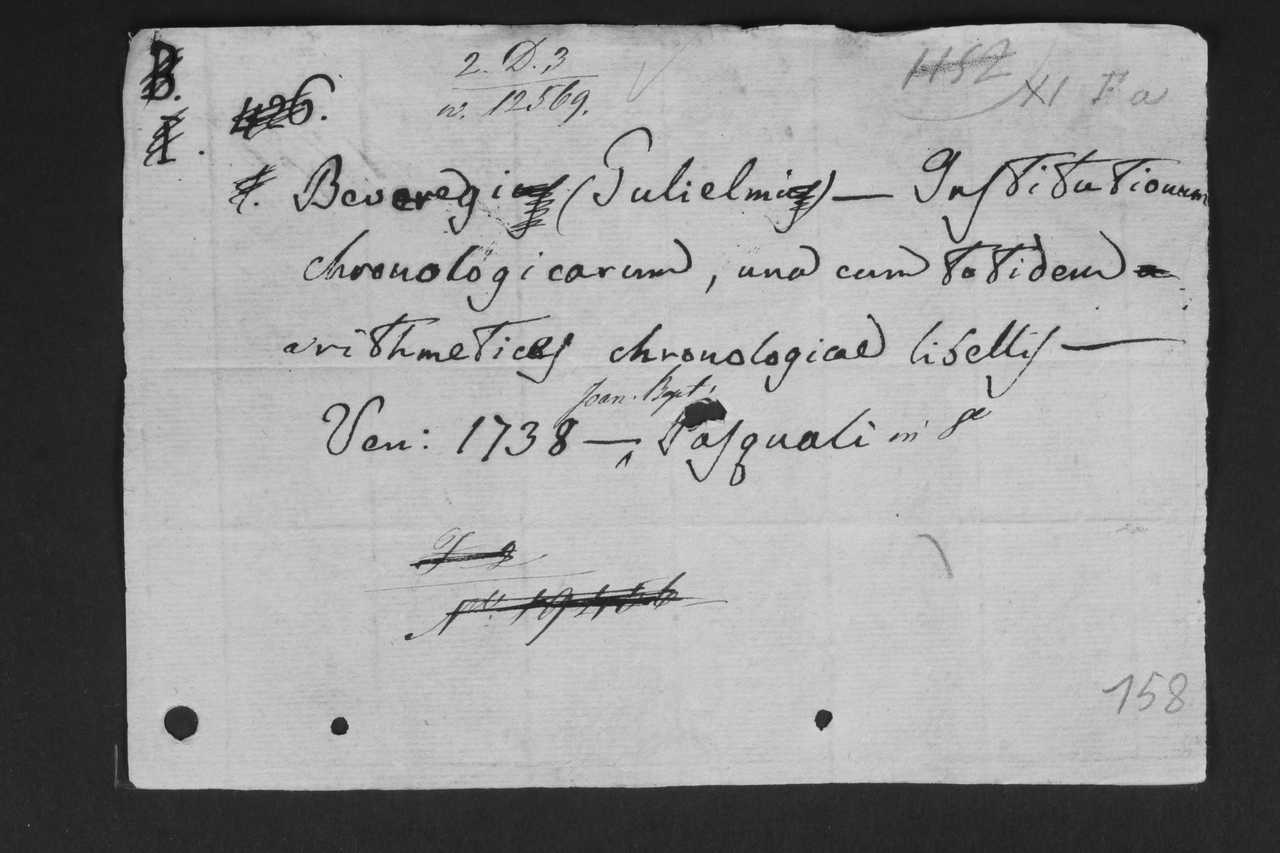 B.
2. D. 3
n. 12569.
1152
XI F a
I. 426.
Beveregius (Gulielmus) — Institutionum
chronologicarum, una cum totidem
arithmetices chronologicae libellis —
Joan. Bapt.
Ven: 1738 — Pasquali in 8º
158